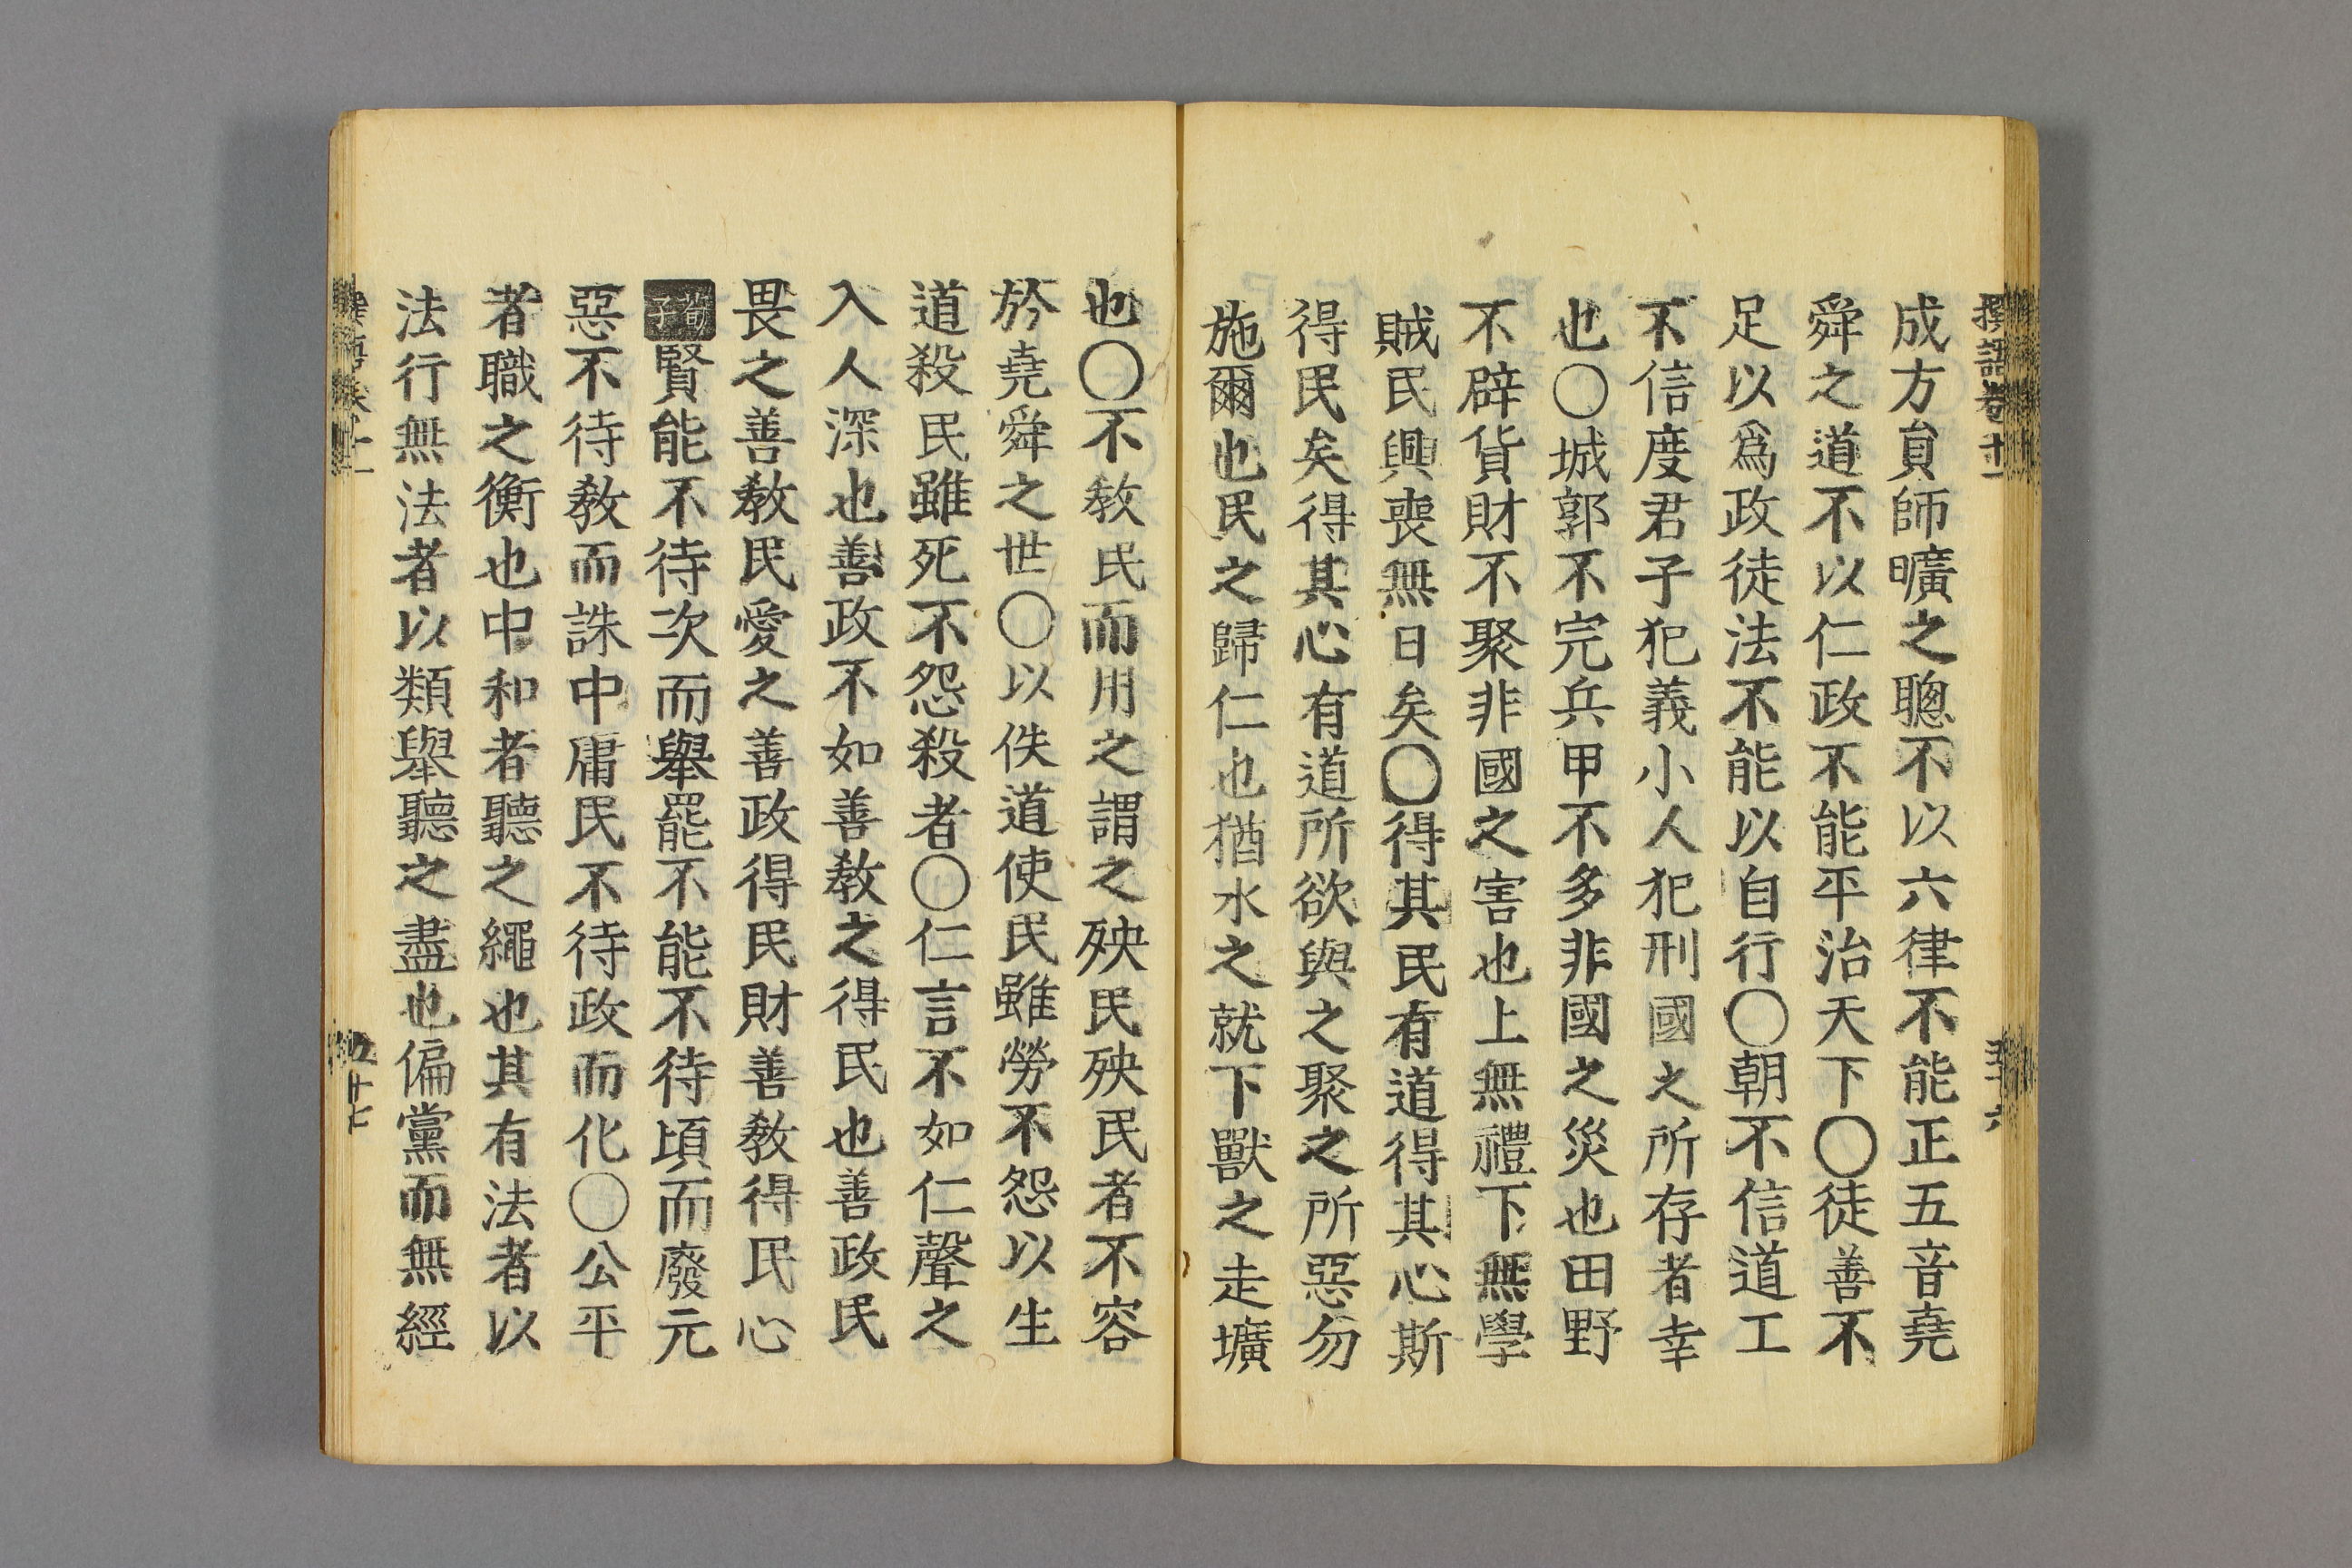 撰語卷十一
五十六
成方員師曠之聰不以六律不能正五音堯
舜之道不以仁政不能平治天下〇徒善不
足以爲政徒法不能以自行〇朝不信道工
不信度君子犯義小人犯刑國之所存者幸
也〇城郭不完兵甲不多非國之災也田野
不辟貨財不聚非國之害也上無禮下無學
賊民興喪無日矣〇得其民有道得其心斯
得民矣得其心有道所欲與之聚之所惡勿
施爾也民之歸仁也猶水之就下獸之走壙
也〇不敎民而用之謂之殃民殃民者不容
於堯舜之世〇以佚道使民雖勞不怨以生
道殺民雖死不怨殺者〇仁言不如仁聲之
入人深也善政不如善敎之得民也善政民
畏之善敎民愛之善政得民財善敎得民心
荀子賢能不待次而舉罷不能不待頃而廢元
惡不待敎而誅中庸民不待政而化〇公平
者職之衡也中和者聽之繩也其有法者以
法行無法者以類舉聽之盡也偏黨而無經
撰語卷十一
五十七